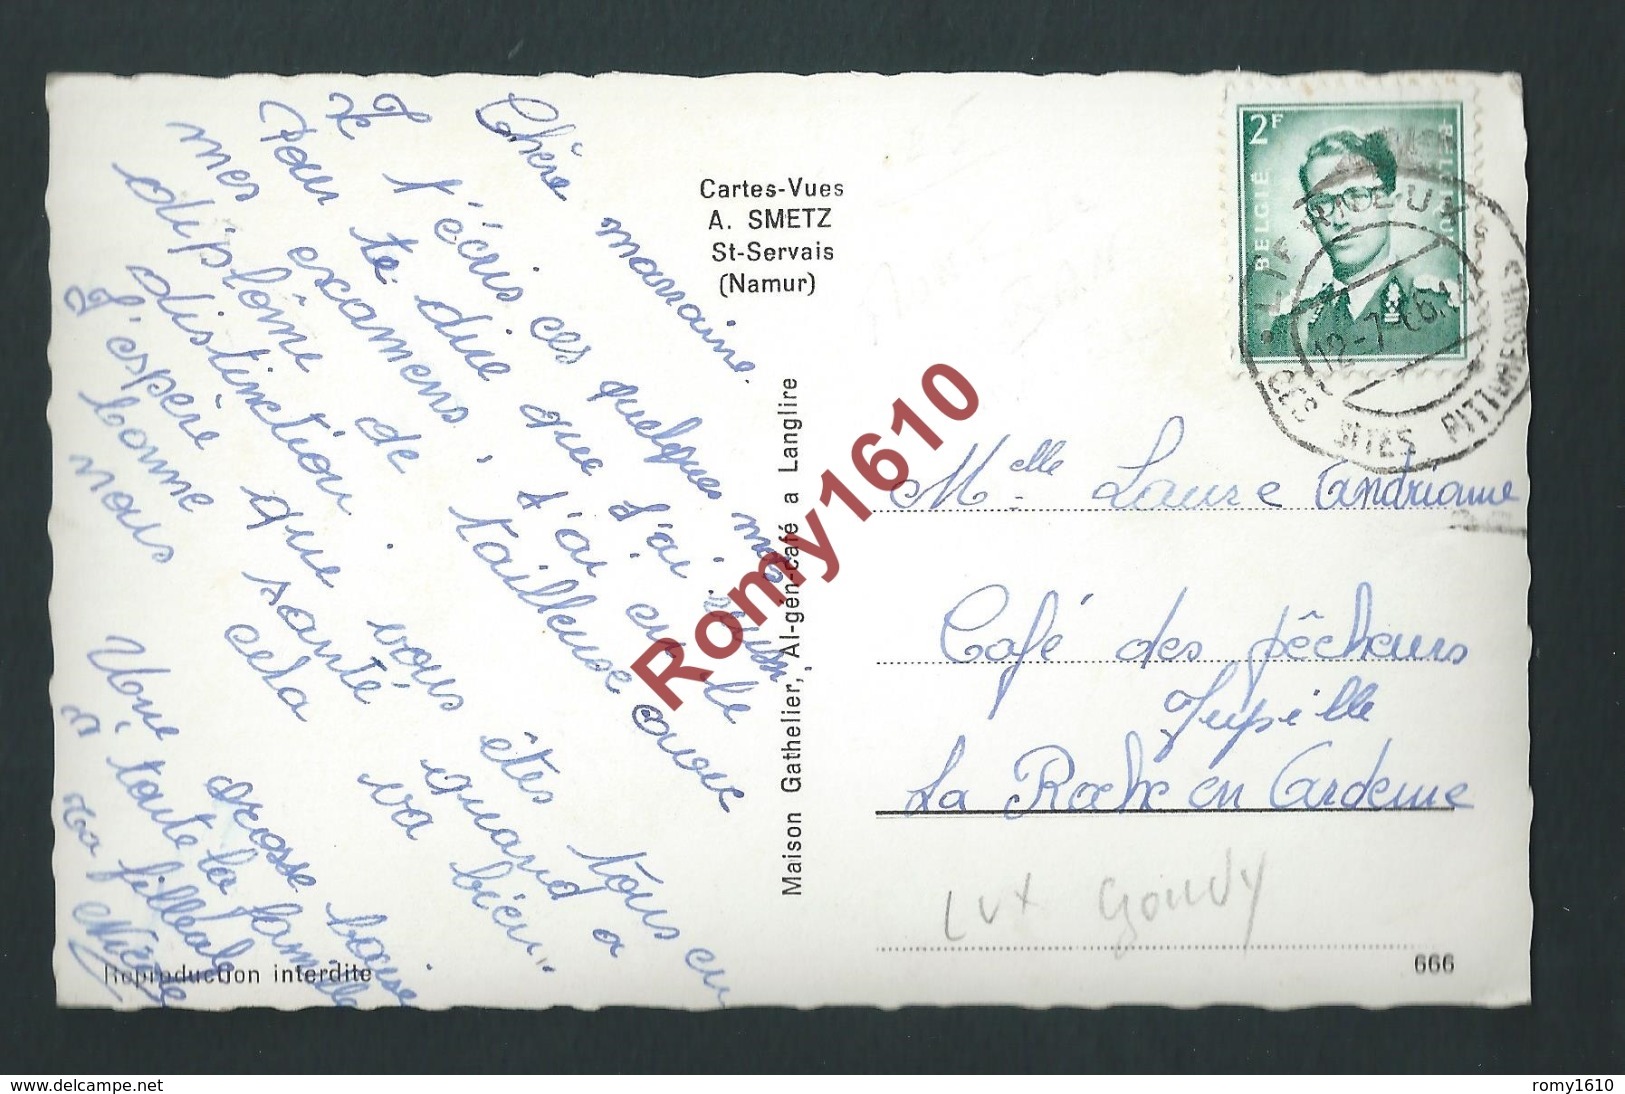 Chère marraine.
Je t'écris ces quelques mots
Pour te dire que j'ai réussi
mes examens. J'ai eu le
diplôme de tailleuse avec
distinction.
J'espère que vous êtes tous en
bonne santé quand à
nous cela va bien.
Une grosse baise
à toute la famille
ta filleule
Reproduction interdite
Cartes-Vues
A. SMETZ
St-Servais
(Namur)
Maison Gathelier, Al-gén-café a Langlire
Romy1610
2F
BELGIË
BELGIQUE
SES SITES PITTORESQUES
Melle Laure Andrianne
Café des pêcheurs
Jupille
La Roche en Ardenne
Lux Gouvy
666
delcampe.net
romy1610